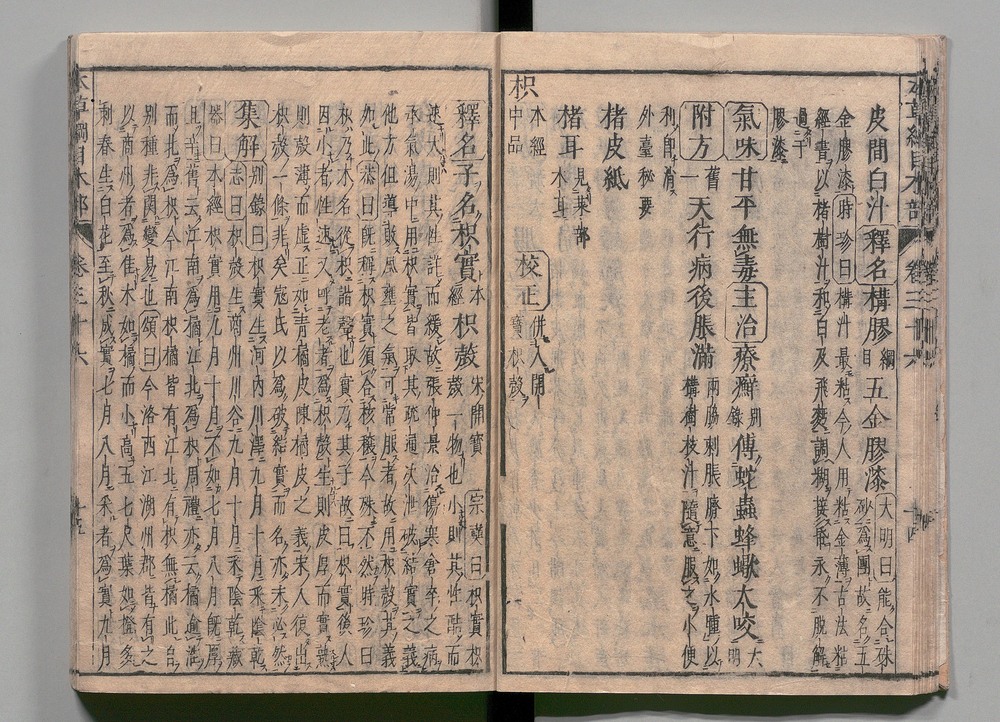 皮間白汁 釋名 構膠 綱目 五金膠漆 大明曰能合硃
砂為團故名五
金膠漆時珍曰構汁最粘今人用粘金薄古法粘
經書以楮樹汁和白及飛麪調糊接紙永不脫解
過于
膠漆
氣味 甘平無毒 主治 療癬 別錄 傅蛇蟲蜂蠍犬咬 大明
附方 舊一 天行病後脹滿 兩脇刺脹臍下如水腫以
構樹枝汁隨意服之小便
利即消
外臺秘要
楮皮紙
楮耳 見菜部
木耳
枳 本經
中品 校正 併入開
寶枳殼
釋名 子名枳實 本經 枳殼 宋開寶 宗奭曰枳實枳
殼一物也小則其性酷而
速大則其性詳而緩故張仲景治傷寒倉卒之病
承氣湯中用枳實皆取其疏通決泄破結實之義
他方但導敗風壅之氣可常服者故用枳殼其義
如此恭曰既稱枳實須合核穰今殊不然時珍曰
枳乃木名從枳諧聲也實乃其子故曰枳實後人
因小者性速又呼老者為枳殼生則皮厚而實熟
則殼薄而虛正如青橘皮陳橘皮之義宋人復出
枳殼一條非矣寇氏以為破結實而名亦未必然
集解 別錄曰枳實生河內川澤九月十月采陰乾
志曰枳殼生商州川谷九月十月采陰乾藏
器曰本經枳實用九月十月不如七月八月既厚
且辛舊云江南為橘江北為枳周禮亦云橘逾淮
而北為枳今江南枳橘皆有江北有枳無橘此自
別種非關變易也頌曰今洛西江湖州郡皆有之
以商州者為佳木如橘而小高五七尺葉如橙多
刺春生白花至秋成實七月八月采者為實九月
本草綱目木部 卷三十六 十四
本草綱目木部 卷三十六 十五